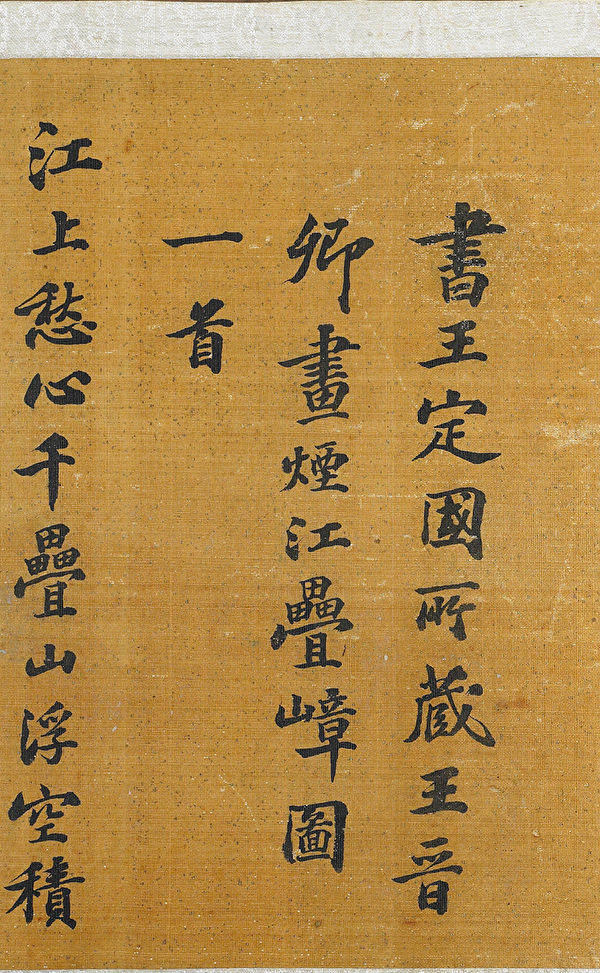 書王定國所藏王晉
卿畫煙江疊嶂圖
一首
江上愁心千疊山浮空積